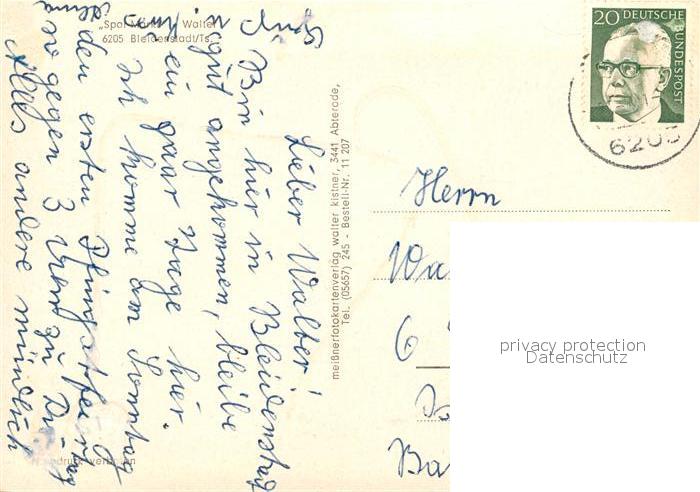 6205 Bleidenstadt/Ts.
Lieber Walter!
Bin hier in Bleidenstadt
gut angekommen, bleibe
ein paar Tage hier.
Ich komme am Sonntag
den ersten Pfingstfeiertag
so gegen 3 Uhr zu Dir
Alles andere mündlich
Gruß
meißnerfotokartenverlag walter kistner, 3441 Abterode,
Tel. (05657) 245 - Bestell-Nr. 11 207
20 DEUTSCHE
BUNDESPOST
6205
Herrn
Wa
6
Ba
privacy protection
Datenschutz